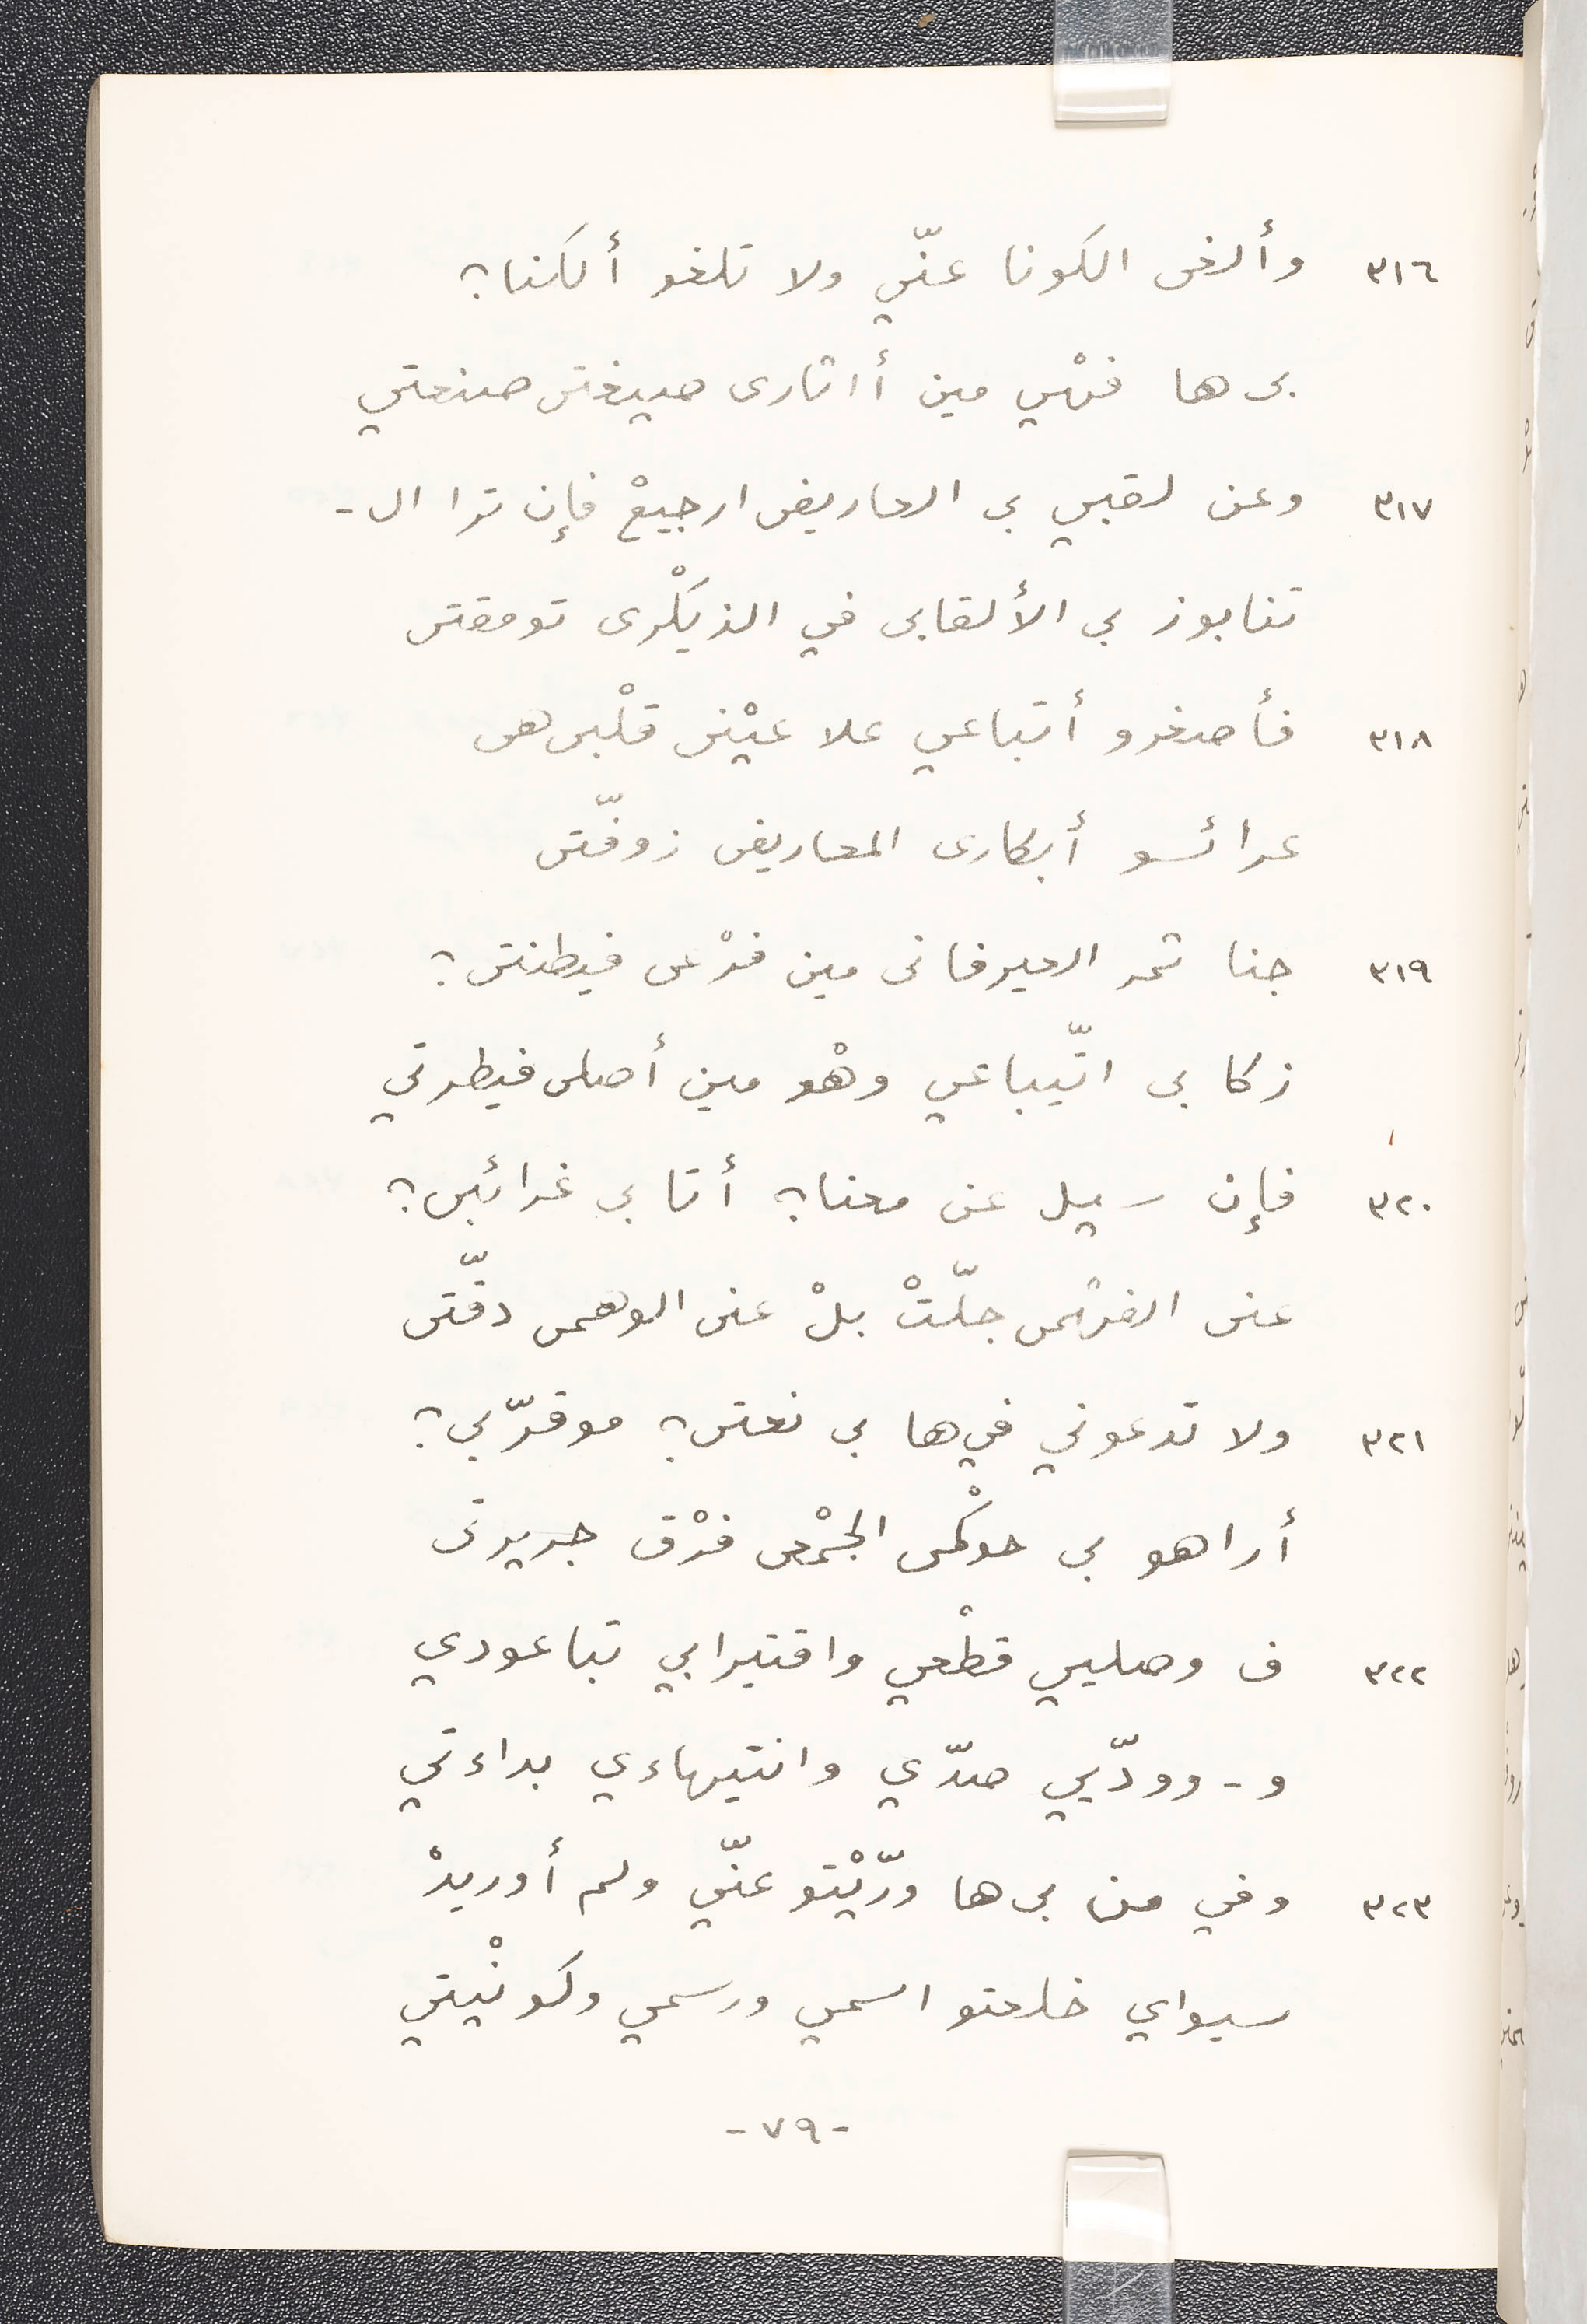 ٣١٦ وألغى الكونا عنّي ولا تلغو ألكنا؟
بى ها فهْي مين أاثارى صيغتى صنعتي
٣١٧ وعن لقبي بى العاريفى ارجيعْ فإن ترا ال-
تنابوز بى الألقابى في الذيكْرى تومقتى
٣١٨ فأصغرو أتباعي علا عيْنى قلْبى هى
عرائسو أبكارى المعاريفى زوفّتى
٣١٩ جنا ثمر العيرفانى مين فرْعى فيطنتى؟
زكا بى اتّيباعي وهْو مين أصلى فيطرتي
٣٢٠ فإن سيل عن معنا؟ أتا بى غرائبى؟
عنى الفهْمى جلّتْ بلْ عنى الوهمى دقّتى
٣٢١ ولا تدعوني في ها بى نعتى؟ موقرّبى؟
أراهو بى حوكْمى الجمْعى فرْق جريرتى
٣٢٢ ف وصليي قطْعي واقتيرابي تباعودي
و- وودّيي صدّي وانتيهاءي بداءتي
٣٢٣ وفي من بى ها ورّيْتو عنّي ولم أوريدْ
سيواي خلعتو اسمي ورسمي وكونْيتي
-٧٩-